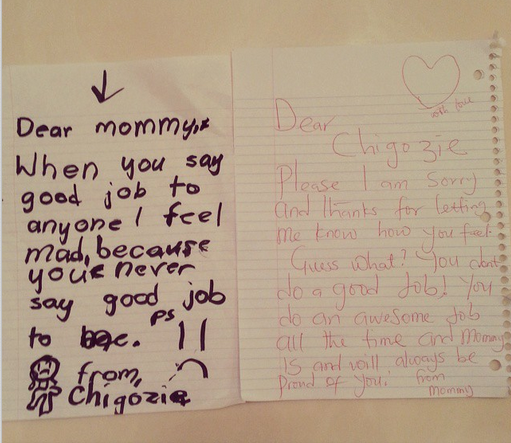 Dear mommy,
When you say
good job to
anyone I feel
mad, because
your never
say good job
to me.
ps
from,
Chigozie
with love
Dear
Chigozie
Please I am sorry
and thanks for letting
me know how you feel.
Guess what? You dont
do a good Job! You
do an awesome Job
all the time and Mommy
Is and will always be
Proud of you. from
Mommy